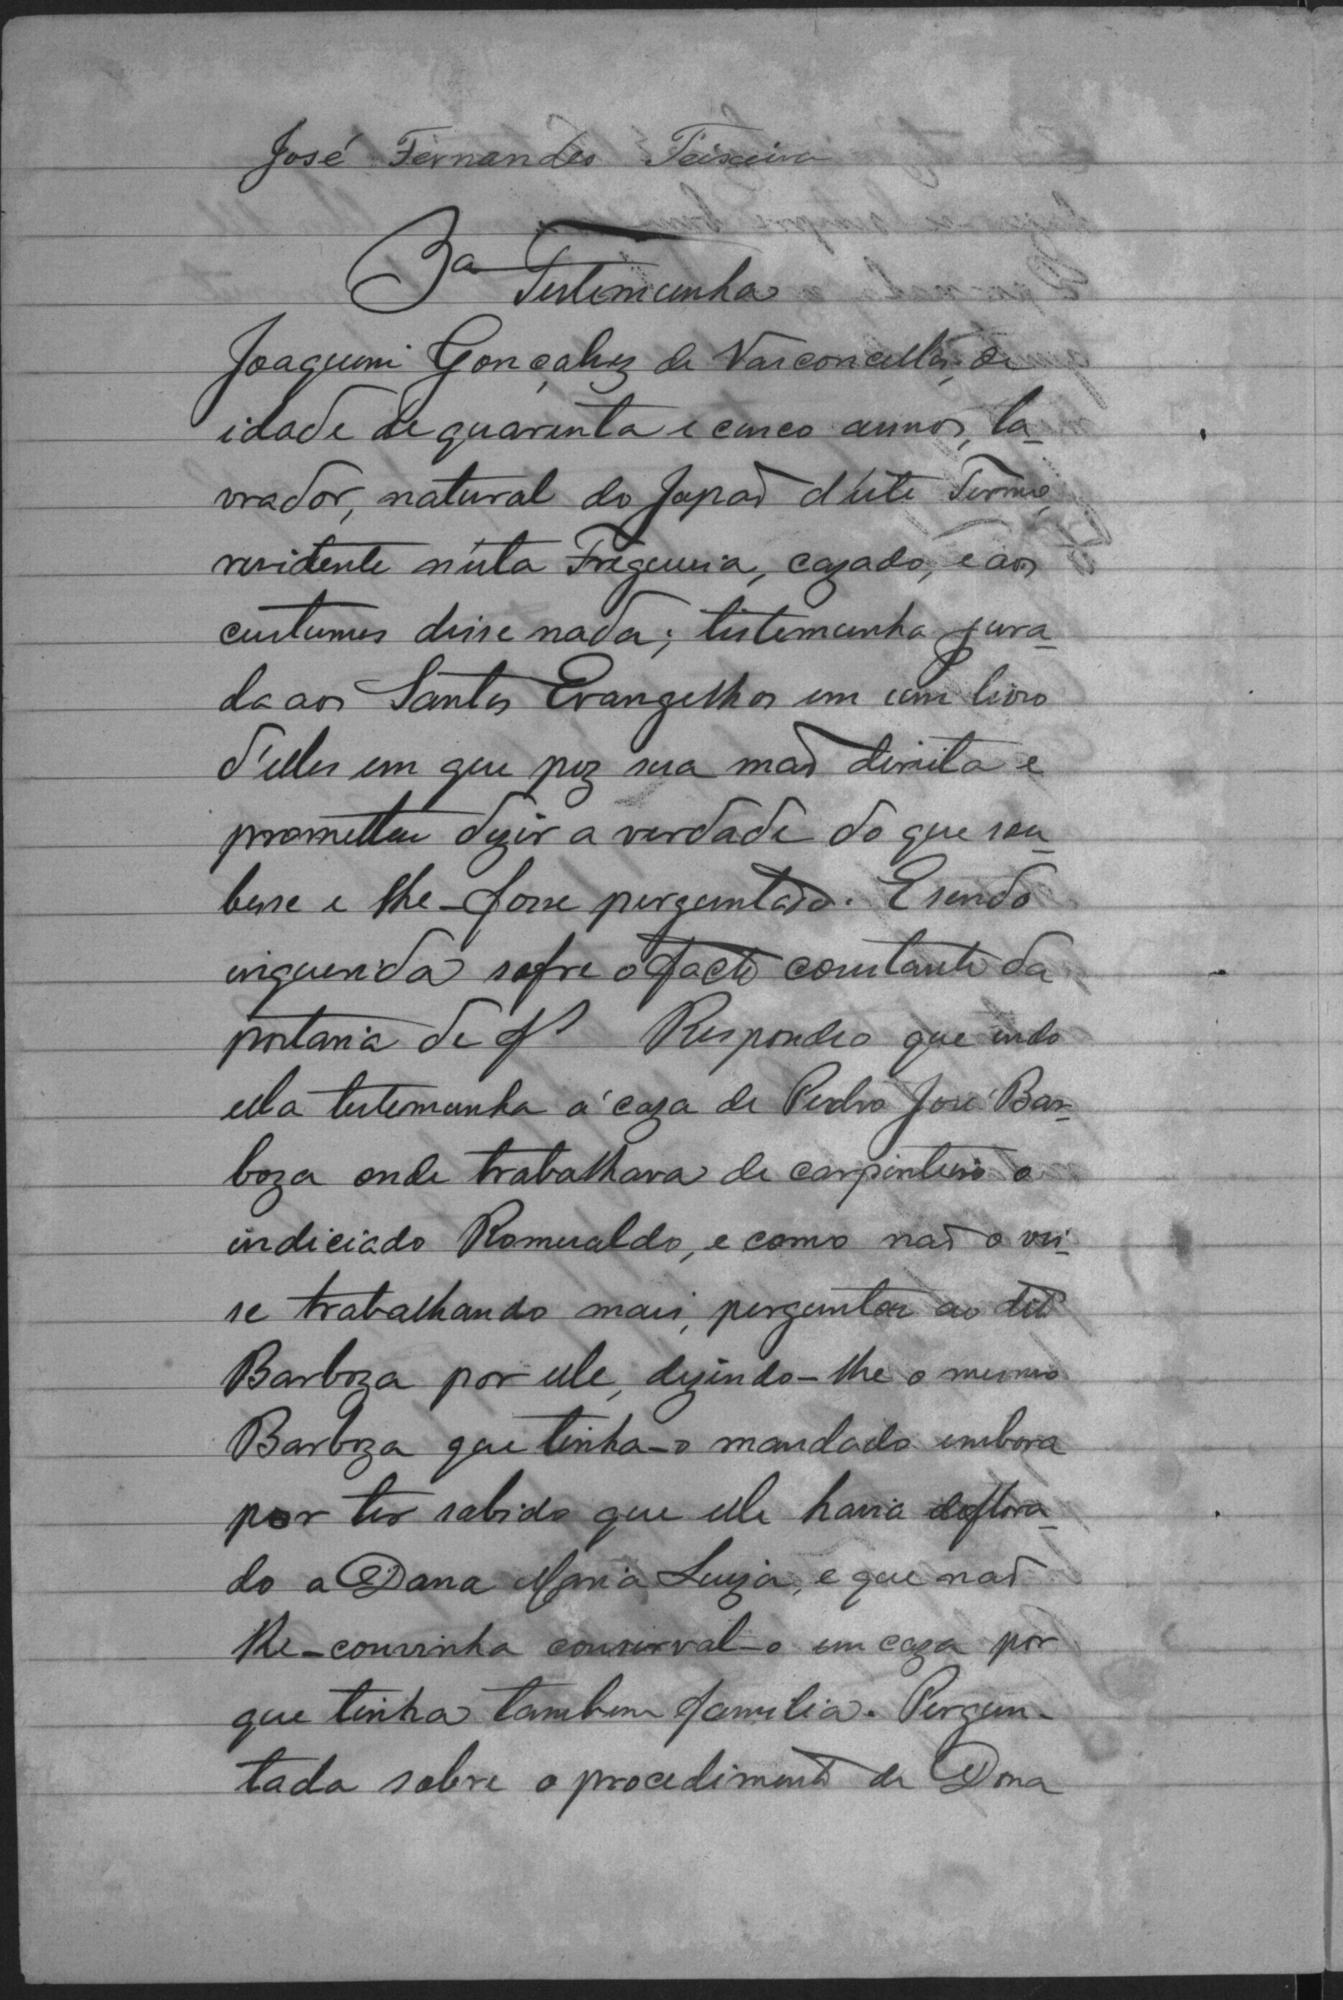 José Fernandes Teixeira
3a Testemunha
Joaquim Gonçalves de Vasconcellos, de
idade de quarenta e cinco annos, la-
vrador, natural do Japaõ d'éste Termo,
residente n'ésta Freguesia, cazado, e aos
custumes disse nada; testemunha jura-
da aos Santos Evangelhos em um livro
d'elles em que poz sua maõ direita e
prometteu dizer a verdade do que sou-
besse e lhe-fosse perguntado. E sendo
inquerida sofre o facto constante da
portaria de fs Respondeo que indo
ella testemunha a' caza de Pedro José Bar-
boza onde trabalhava de carpinteiro o
indiciado Romualdo, e como naõ o vis-
se trabalhando mais, perguntou ao dito
Barboza por elle, dizindo-lhe o mesmo
Barboza que tinha-o mandado embora
por ter sabido que elle havia deflora-
do a Dona Maria Luiza, e que naõ
lhe-convinha conserval-o em caza por
que tinha tambem familia. Pergun-
tada sobre o procedimento de Dona